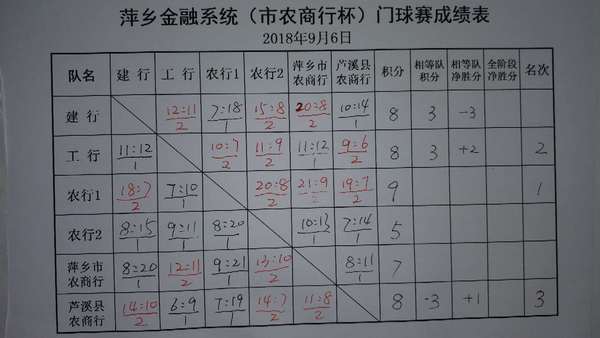 萍乡金融系统（市农商行杯）门球赛成绩表
2018年9月6日
队名 建行 工行 农行1 农行2 萍乡市农商行 芦溪县农商行 积分 相等队积分 相等队净胜分 全阶段净胜分 名次
建行 12:11/2 7:18/1 15:8/2 20:8/2 10:14/1 8 3 -3
工行 11:12/1 10:7/2 11:9/2 11:12/1 9:6/2 8 3 +2 2
农行1 18:7/2 7:10/1 20:8/2 21:9/2 19:7/2 9 1
农行2 8:15/1 9:11/1 8:20/1 10:13/1 7:14/1 5
萍乡市农商行 8:20/1 12:11/2 9:21/1 13:10/2 8:11/1 7
芦溪县农商行 14:10/2 6:9/1 7:19/1 14:7/2 11:8/2 8 -3 +1 3